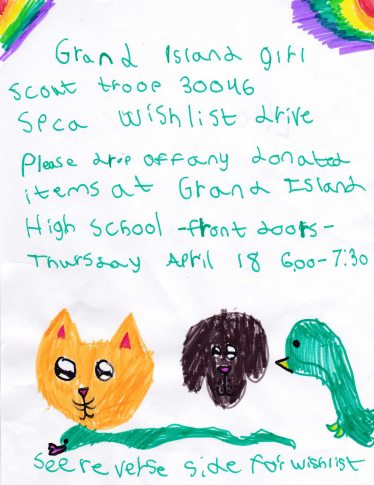 Grand Island girl
scout troop 30046
Spca wishlist drive
Please drip off any donated
items at Grand Island
High School -front doors-
Thursday April 18 6:00-7:30
See reverse side for wishlist